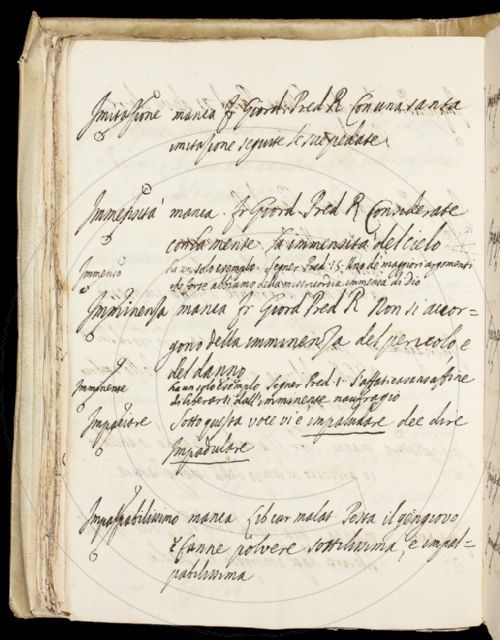 Imitazione manca fr Giord. Pred R Con una santa
imitazione seguite le sue pedate.
Immensità manca. fr Giord. Pred R Considerate
con la mente la immensità del cielo
Immenso ha un solo esempio. Segner Pred. 15. Uno de maggiori argomenti
che forse abbiamo della misericordia immensa di Dio
Imminenza manca fr Giord Pred R Non si accor-
gono della imminenza del pericolo e
del danno
Imminente ha un solo esempio Segner Pred. 1. S'affaticasan a fine
di liberarsi dall'imminente naufragio
Sotto questa voce vi è impaludare dee dire
Impadulare
Impalpabilissimo manca Lib cur malat Pesta il gengiovo
e fanne polvere sottilissima, e impal-
pabilissima